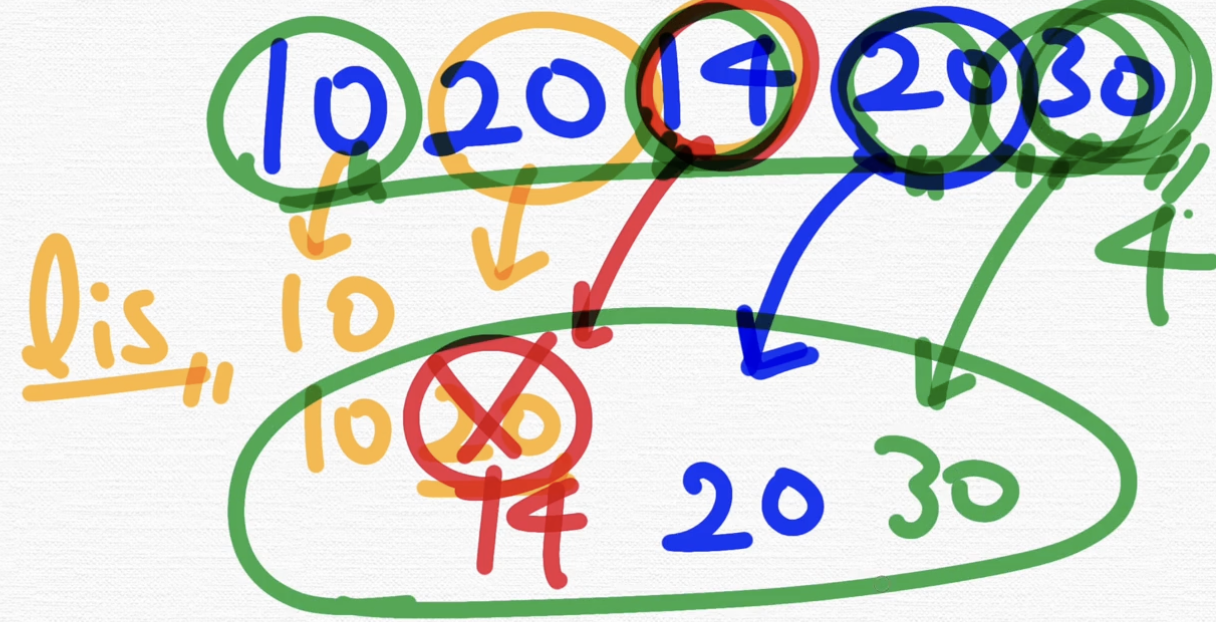 10 20 14 20 30
4
lis
10
10 20
14 20 30